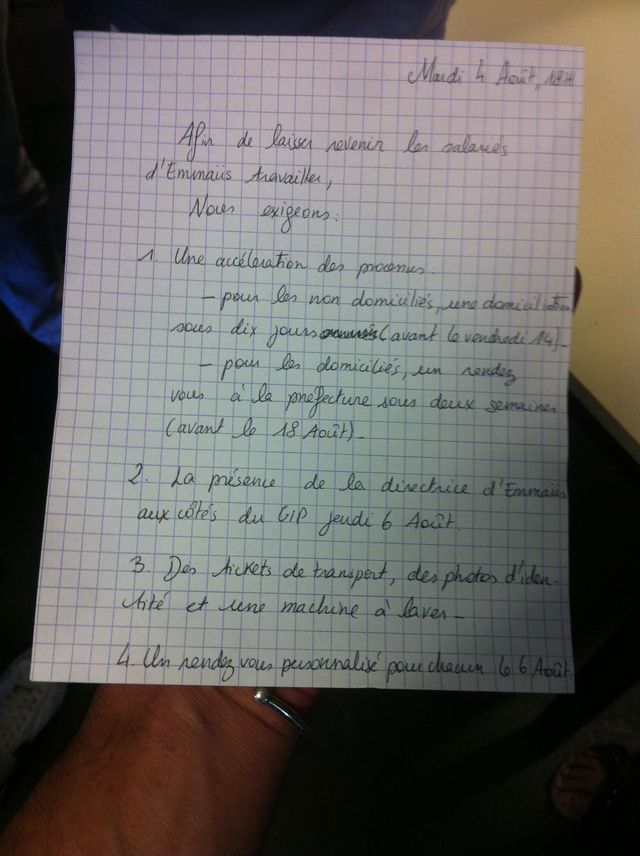 Mardi 4 Août, 18H
Afin de laisser revenir les salariés
d'Emmaüs travailler,
Nous exigeons:
1. Une accéleration des processus:
– pour les non domiciliés, une domiciliation
sous dix jours (avant le vendredi 14)–
– pour les domiciliés, un rendez
vous à la préfecture sous deux semaines
(avant le 18 Août)–
2. La présence de la directrice d'Emmaüs
aux côtés du GIP jeudi 6 Août.
3. Des tickets de transport, des photos d'iden-
tité et une machine à laver–
4. Un rendez vous personnalisé pour chacun le 6 Août